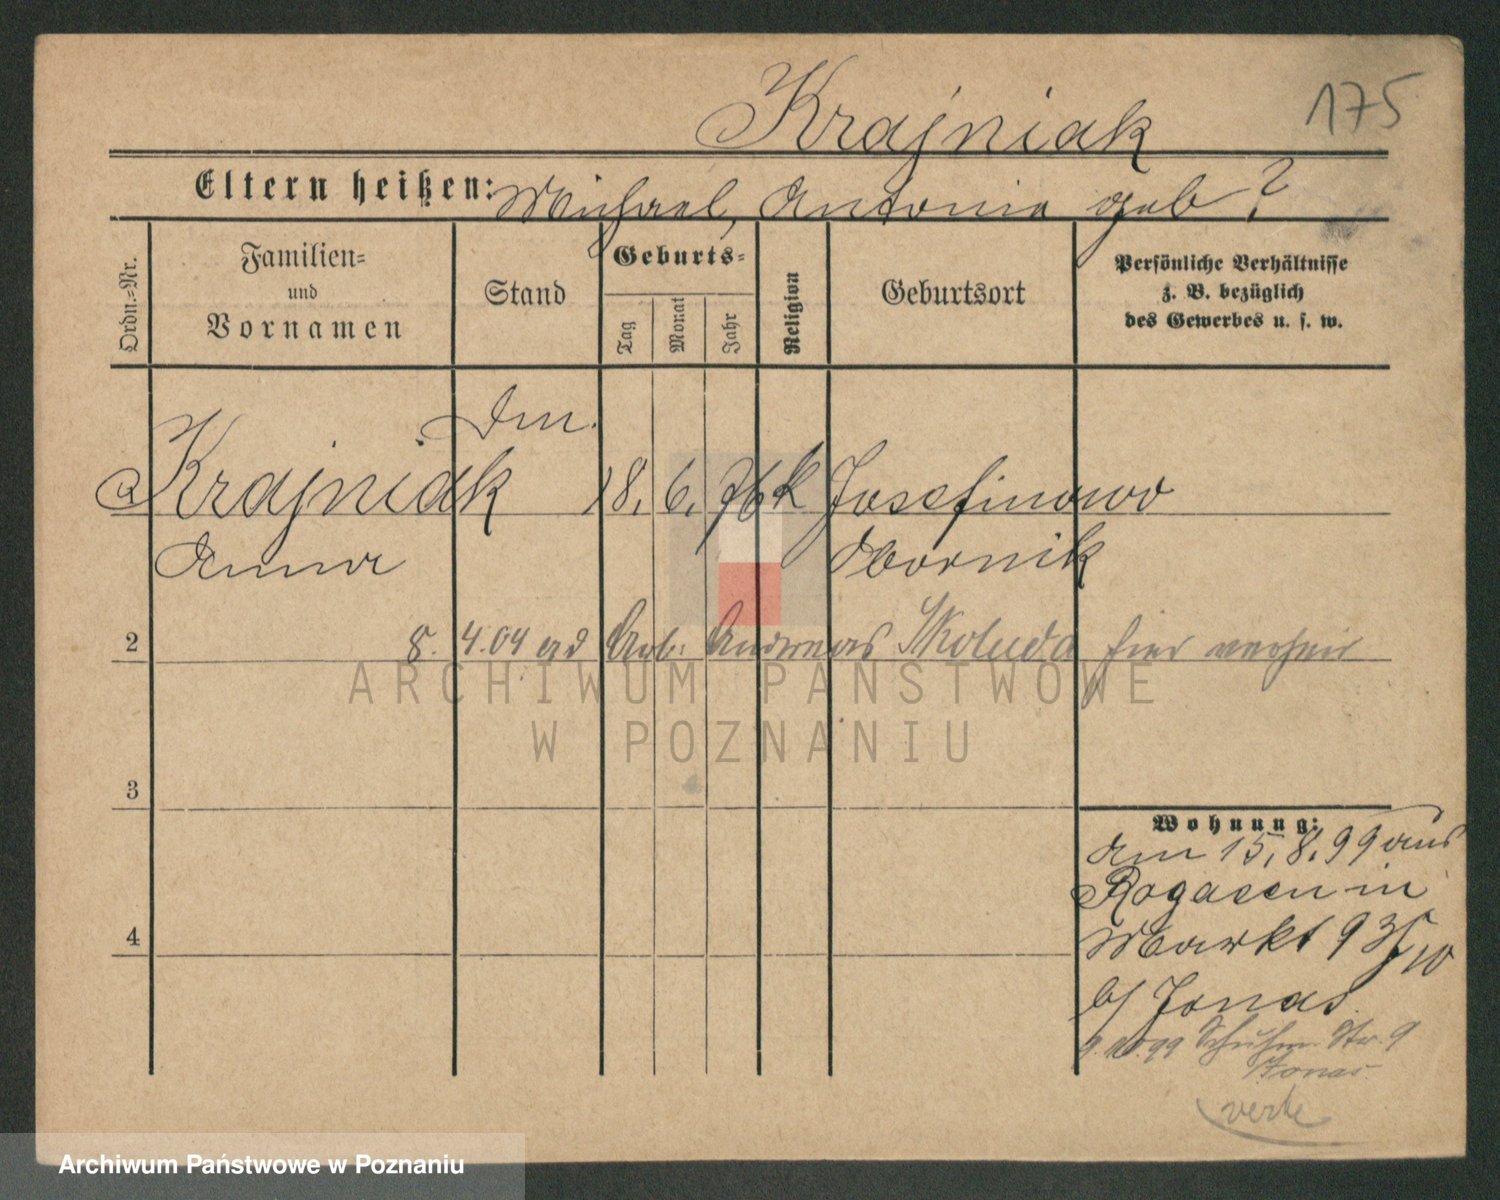 Krajniak
175
Eltern heißen: Michael, Antonie geb?
Ordn.=Nr.
Familien=
und
Vornamen
Stand
Geburts=
Tag
Monat
Jahr
Religion
Geburtsort
Persönliche Verhältnisse
z. B. bezüglich
des Gewerbes u. s. w.
Dm.
Krajniak 18. 6. 76 k Josefinowo
Anna Obornik
2 8. 4.04 ad Arb. Andreas Skoluda hier verheir
ARCHIWUM PAŃSTWOWE
W POZNANIU
3
Wohnung:
am 15. 8. 99 aus
Rogasen in
4 Markt 93
b/ Jonas
9. 10. 99 Schuhm. Str. 9
Jonas
verte
Archiwum Państwowe w Poznaniu